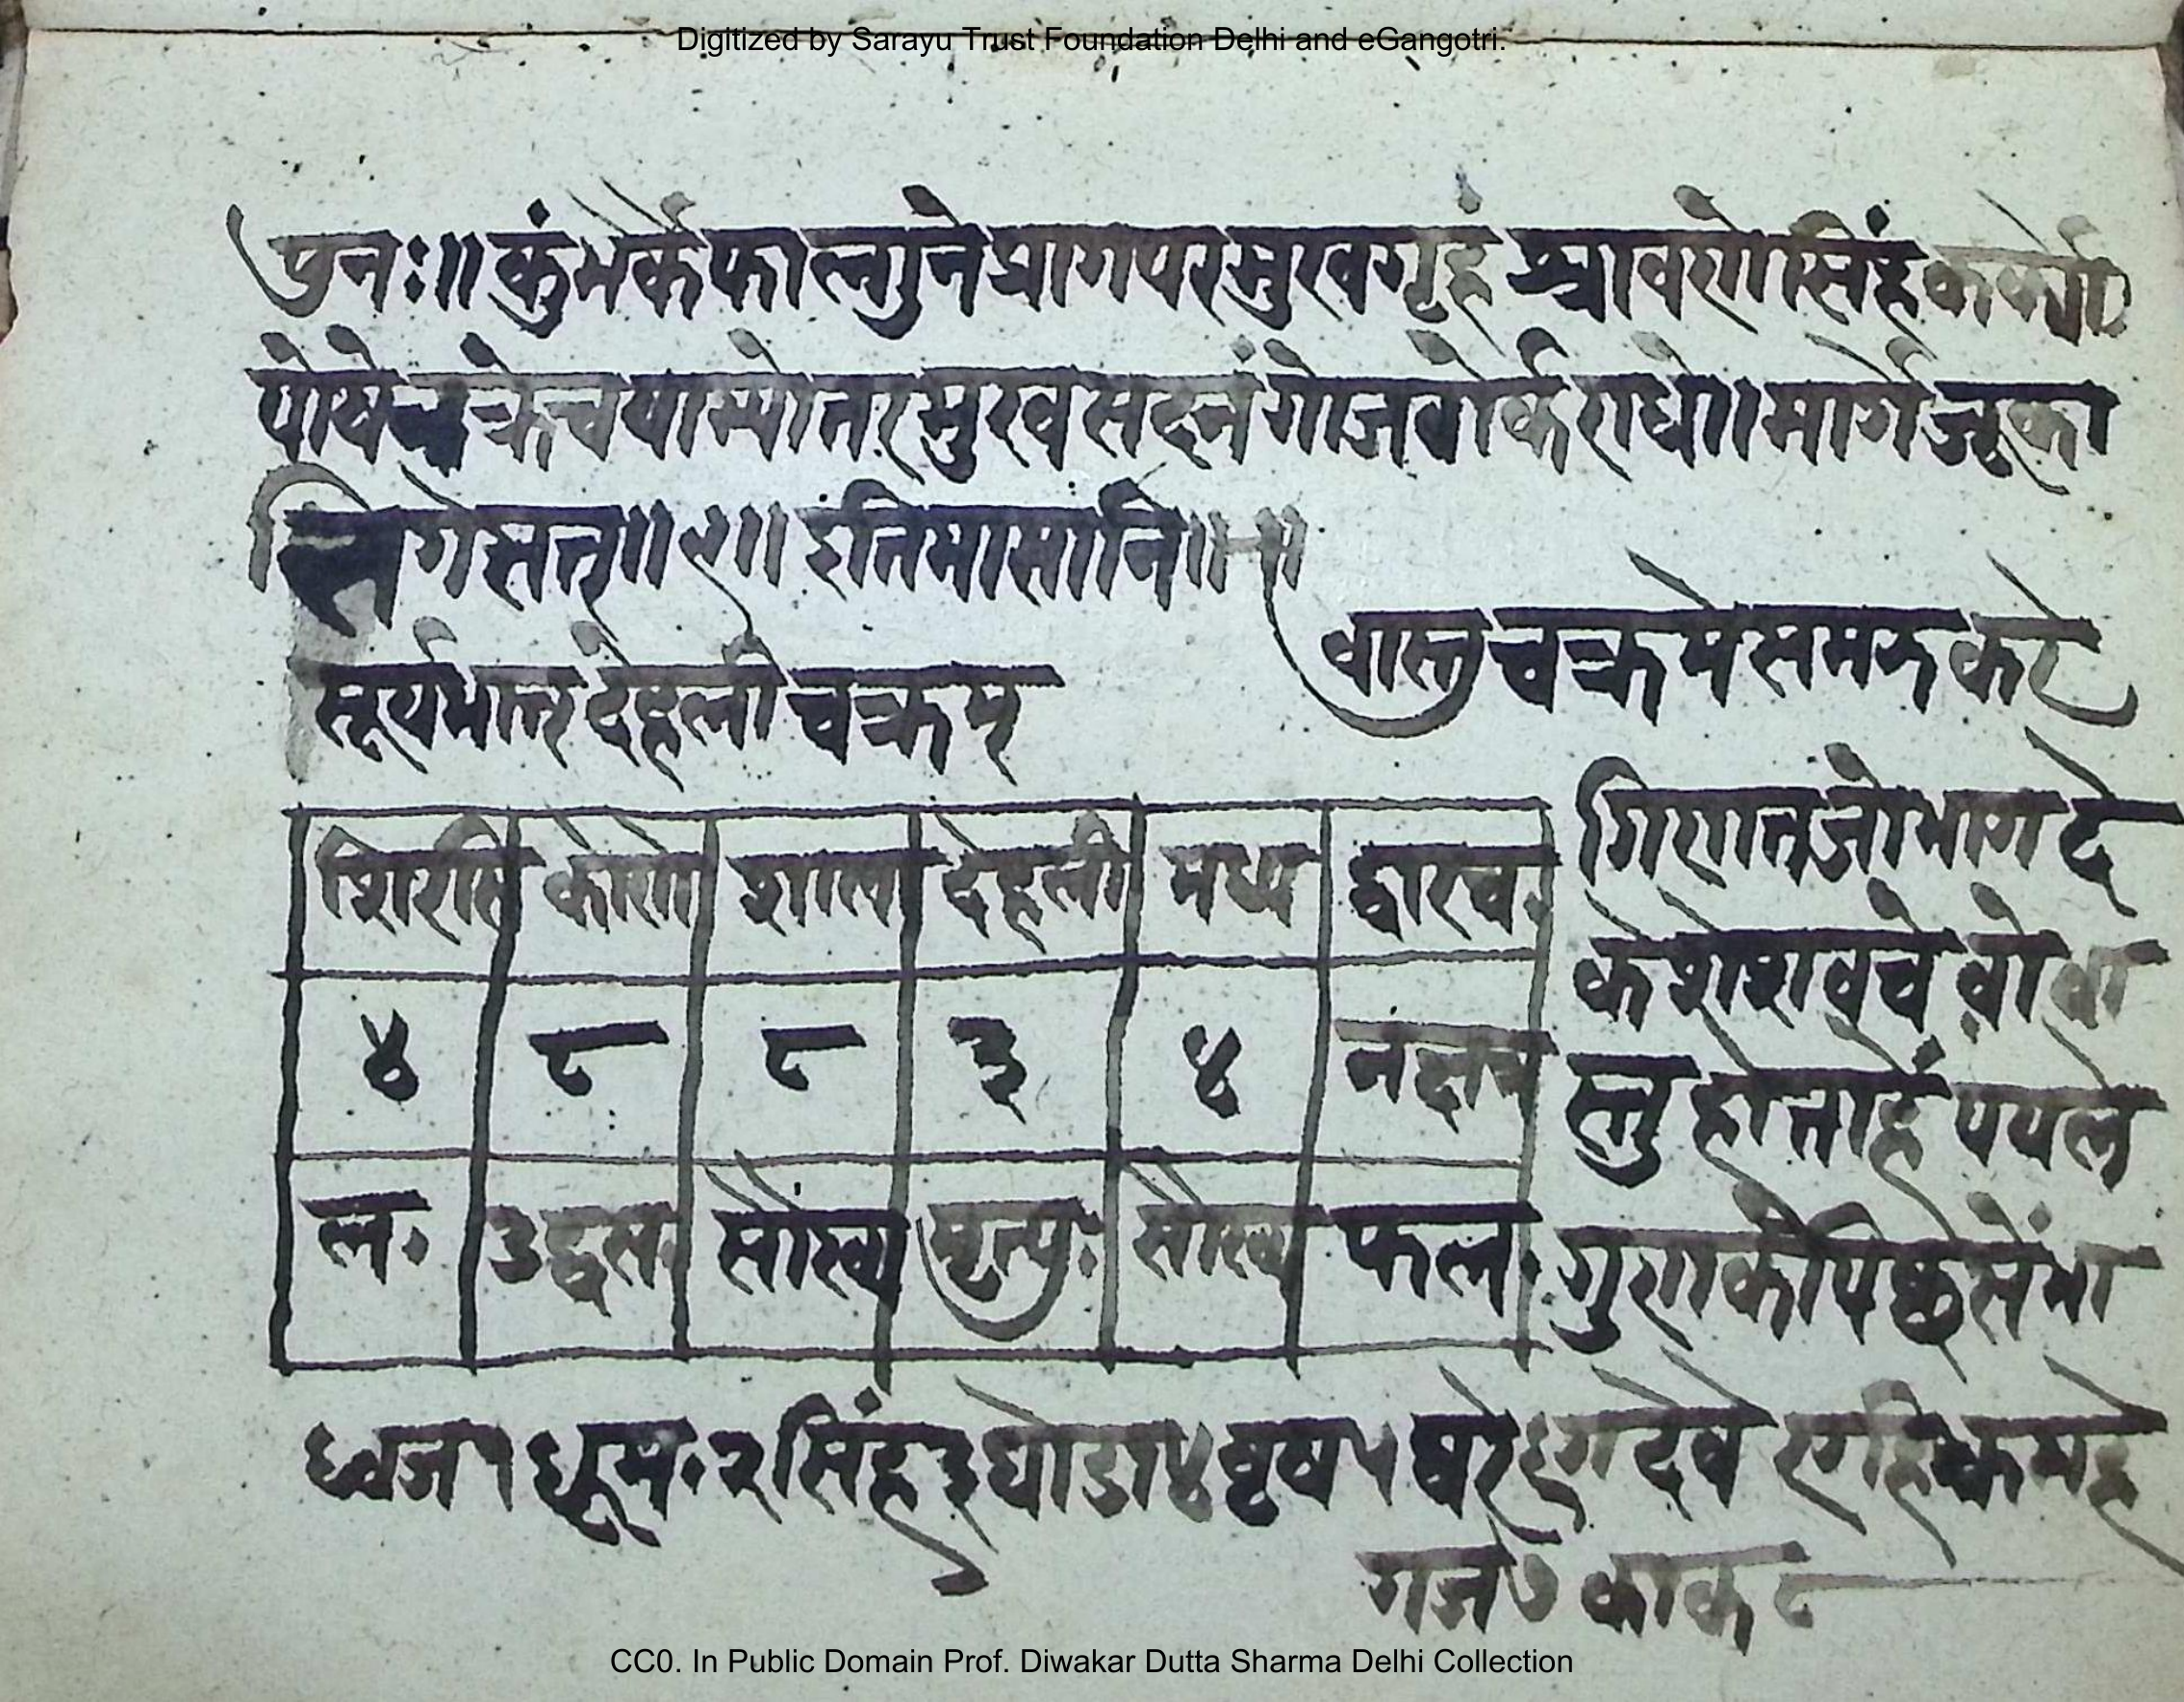 Digitized by Sarayu Trust Foundation Delhi and eGangotri.
पुनः॥ कुंभर्के फाल्गुने प्रागपरमुखगृहं श्रावणे सिंहकर्क्यो
पोषे च क्रे च याम्योतरमुख सदनं गोजगेर्क राधे॥ मार्गे जूका
र्त्तिगे सत् ॥१॥ इति मासानि॥
वास्तु चक्र मे समझ करे
सूर्यभात् देहली चक्रम्
शिरसि कोणे शाखा देहली मध्य द्वारच.
४ ८ ८ ३ ४
ल. उद्वस. सौख्य मृत्युः सौख्य फल.
गिणत जो भाग दे
के शेश वचे वो वा
स्तु होता हें पयले
गुणाके पिछे सें भा
ध्वज १ धूम. २ सिंह ३ घोडा ४ वृष ५ षर ६ ग देवे
गज ७ काक ८
CC0. In Public Domain Prof. Diwakar Dutta Sharma Delhi Collection